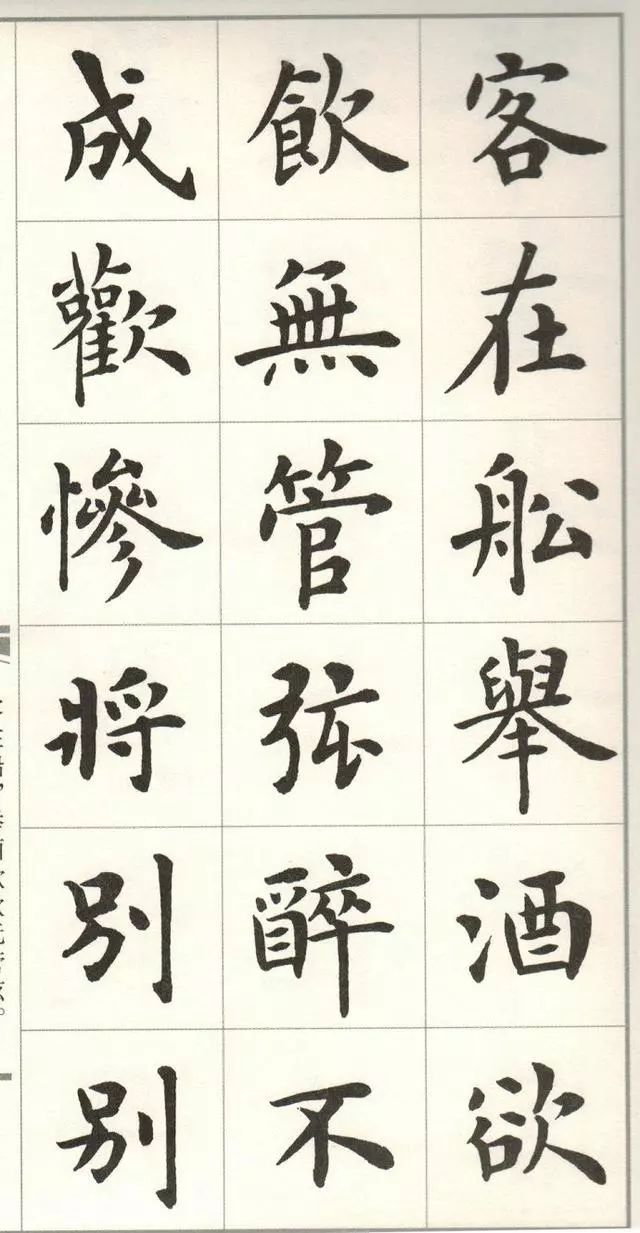 客在舩舉酒欲
飲無管弦醉不
成歡慘將別别